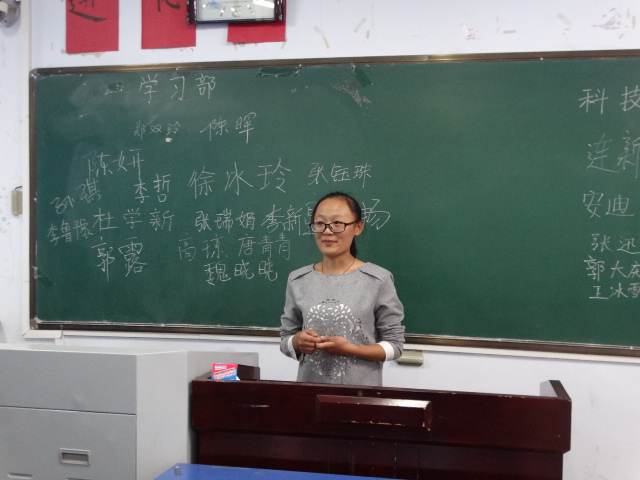 学习部
郑双玲 陈晖
陈妍
孙琪 李哲 徐冰玲 张钰珠
杜学新 张瑞娟 李新
郭露 高琼 唐青青
魏晓晓
科技
连新
安迪
张迅
郭大
王冰